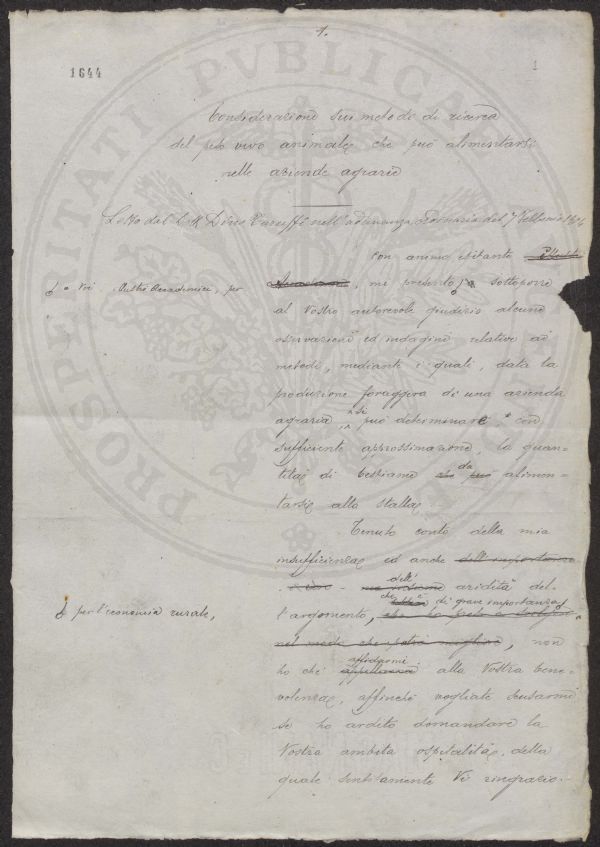 1.
1644
1
Considerazioni sui metodi di ricerca
del peso vivo animale che può alimentarsi
nelle aziende agrarie
Letto dal S. M. nell'adunanza ordinaria del 7 Febbraio
Con animo esitante
a Voi Illustri Accademici, per
Accademici, mi presento, sottoporre
al Vostro autorevole giudizio alcune
osservazioni ed indagini relative ai
metodi, mediante i quali, data la
produzione foraggera di una azienda
agraria, si può determinare con
sufficiente approssimazione, la quan-
tità di bestiame da alimen-
tarsi alla stalla.
Tenuto conto della mia
insufficienza ed anche dell'importanza
dell' aridità del-
che è di grave importanza
l'argomento,
per l'economia rurale,
nel modo che potrei migliore, non
ho che affidarmi alla Vostra bene-
volenza, affinché vogliate scusarmi
se ho ardito domandare la
Vostra ambita ospitalità, della
quale sentitamente Vi ringrazio.
PROSPERITATI PVBLICAE